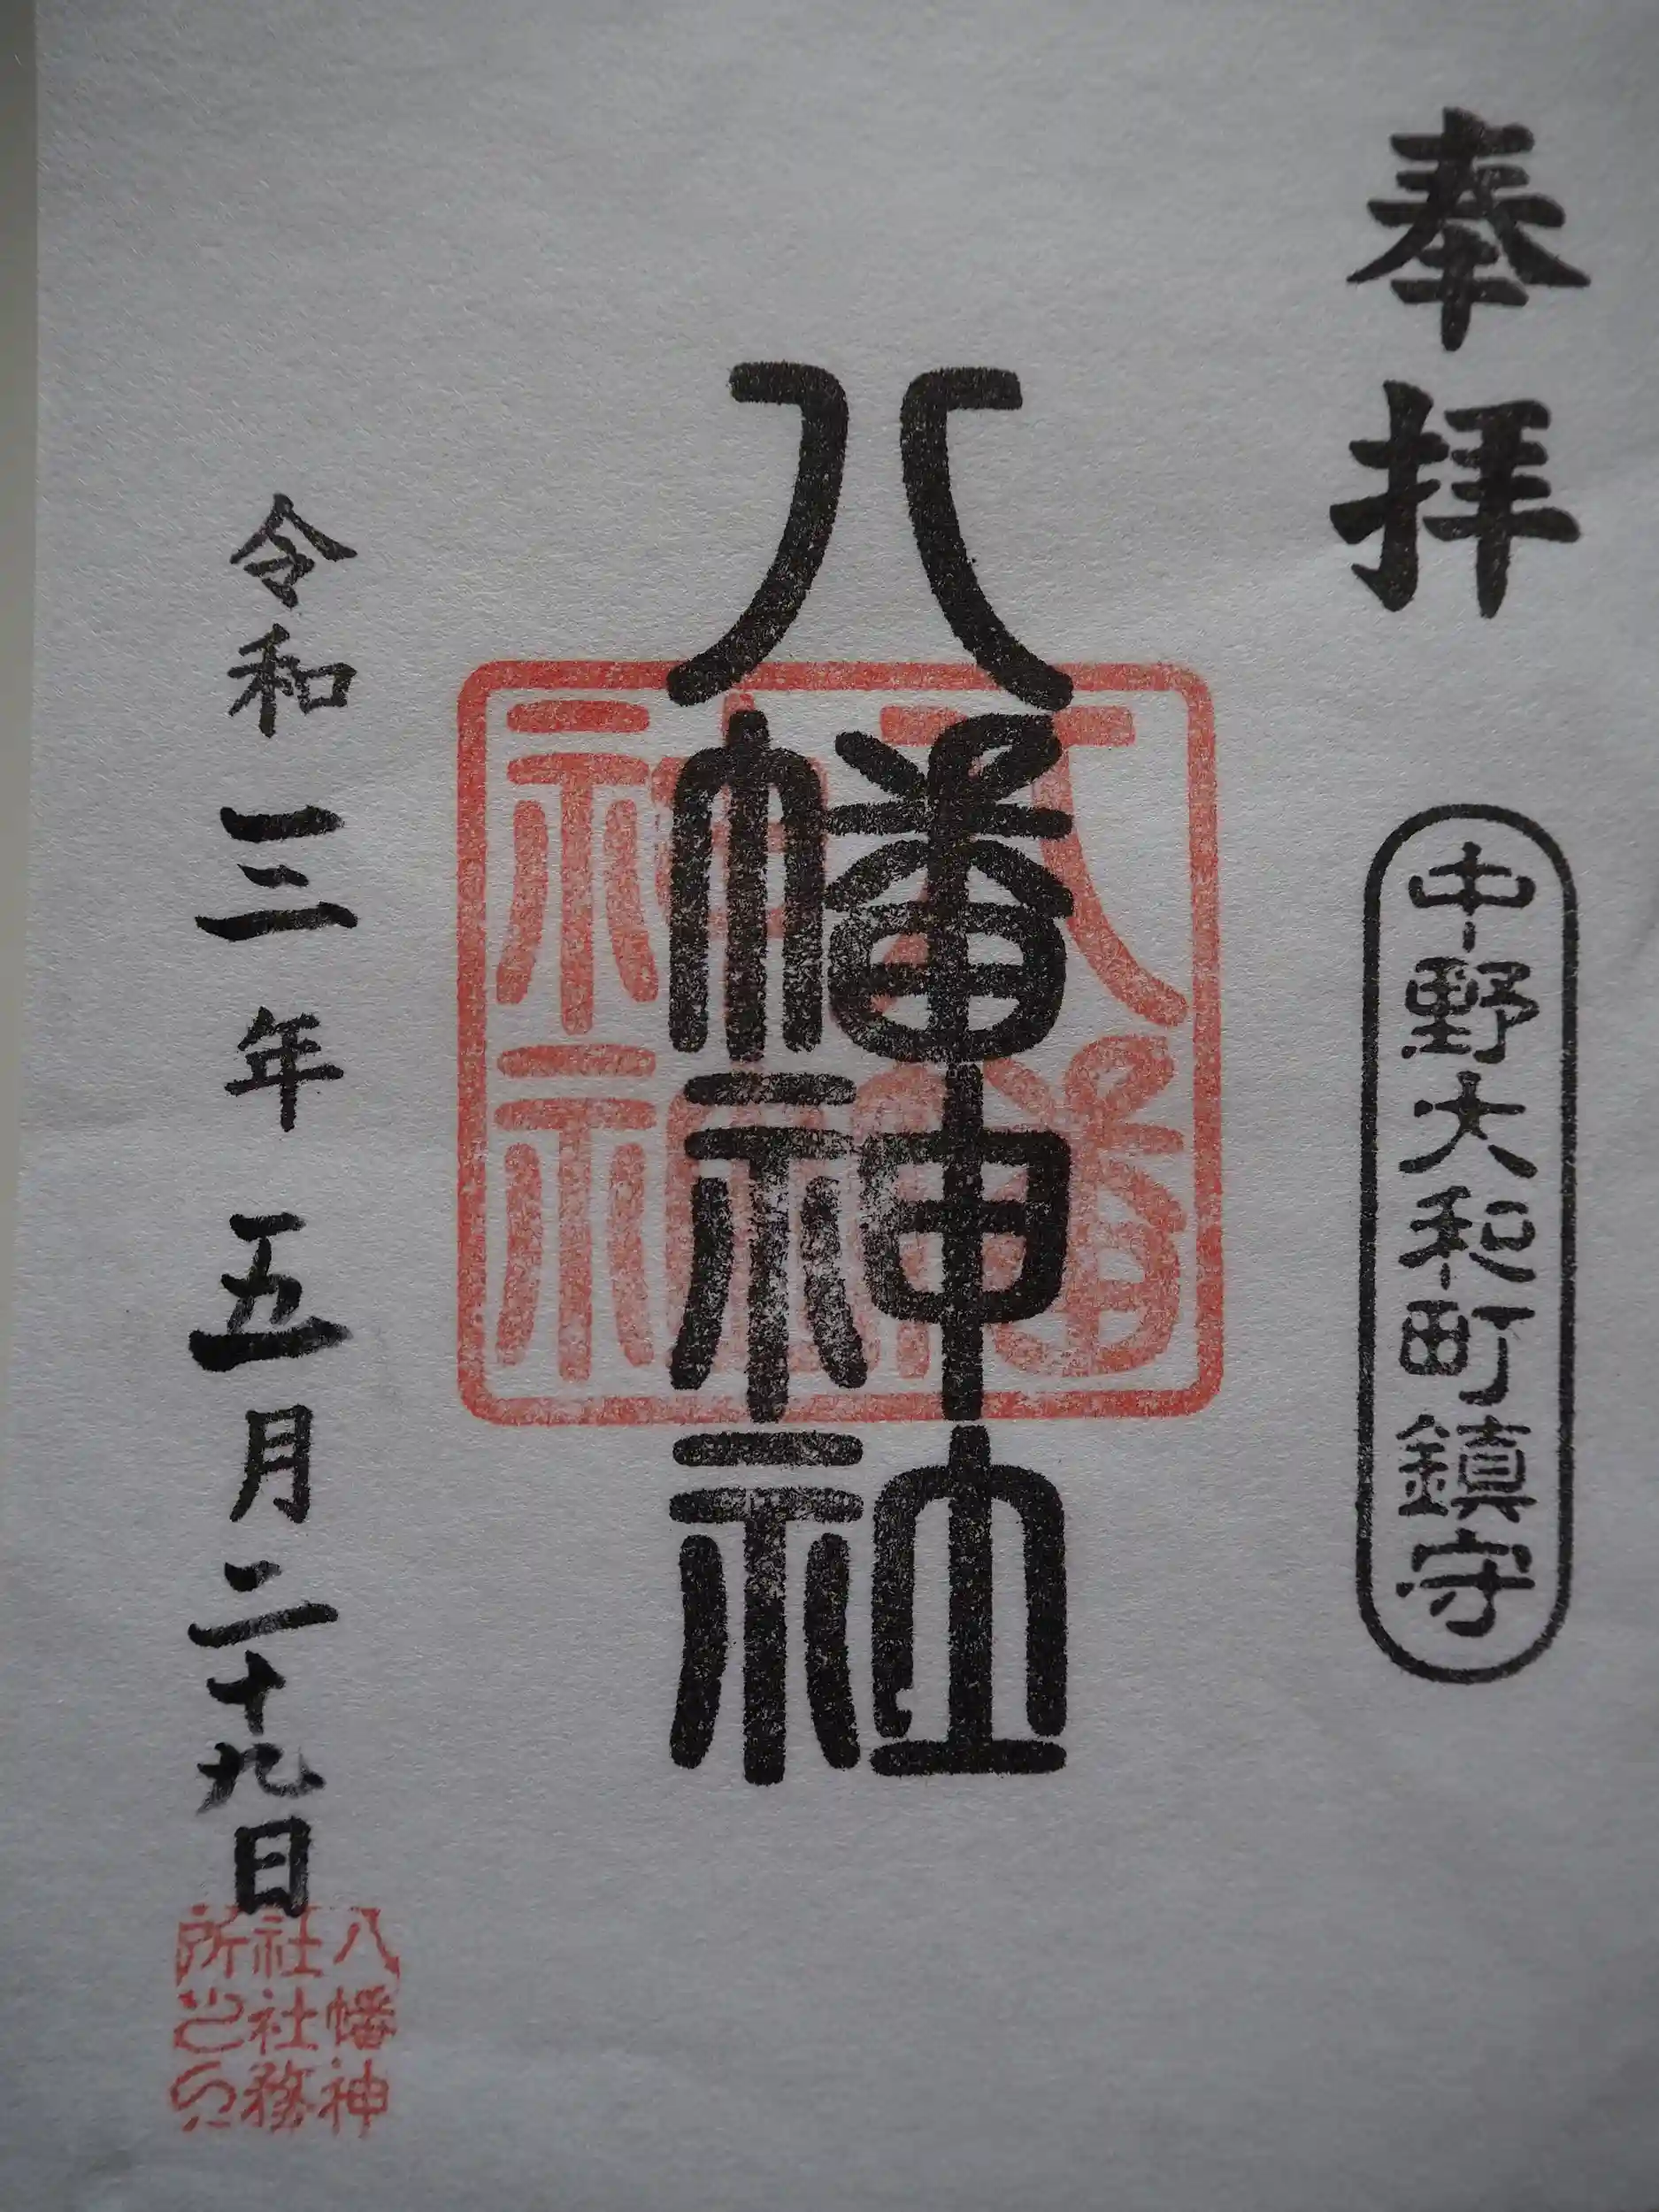 奉拝
中野大和町鎮守
八幡神社
令和三年五月二十九日
八幡神
社社務
所之印